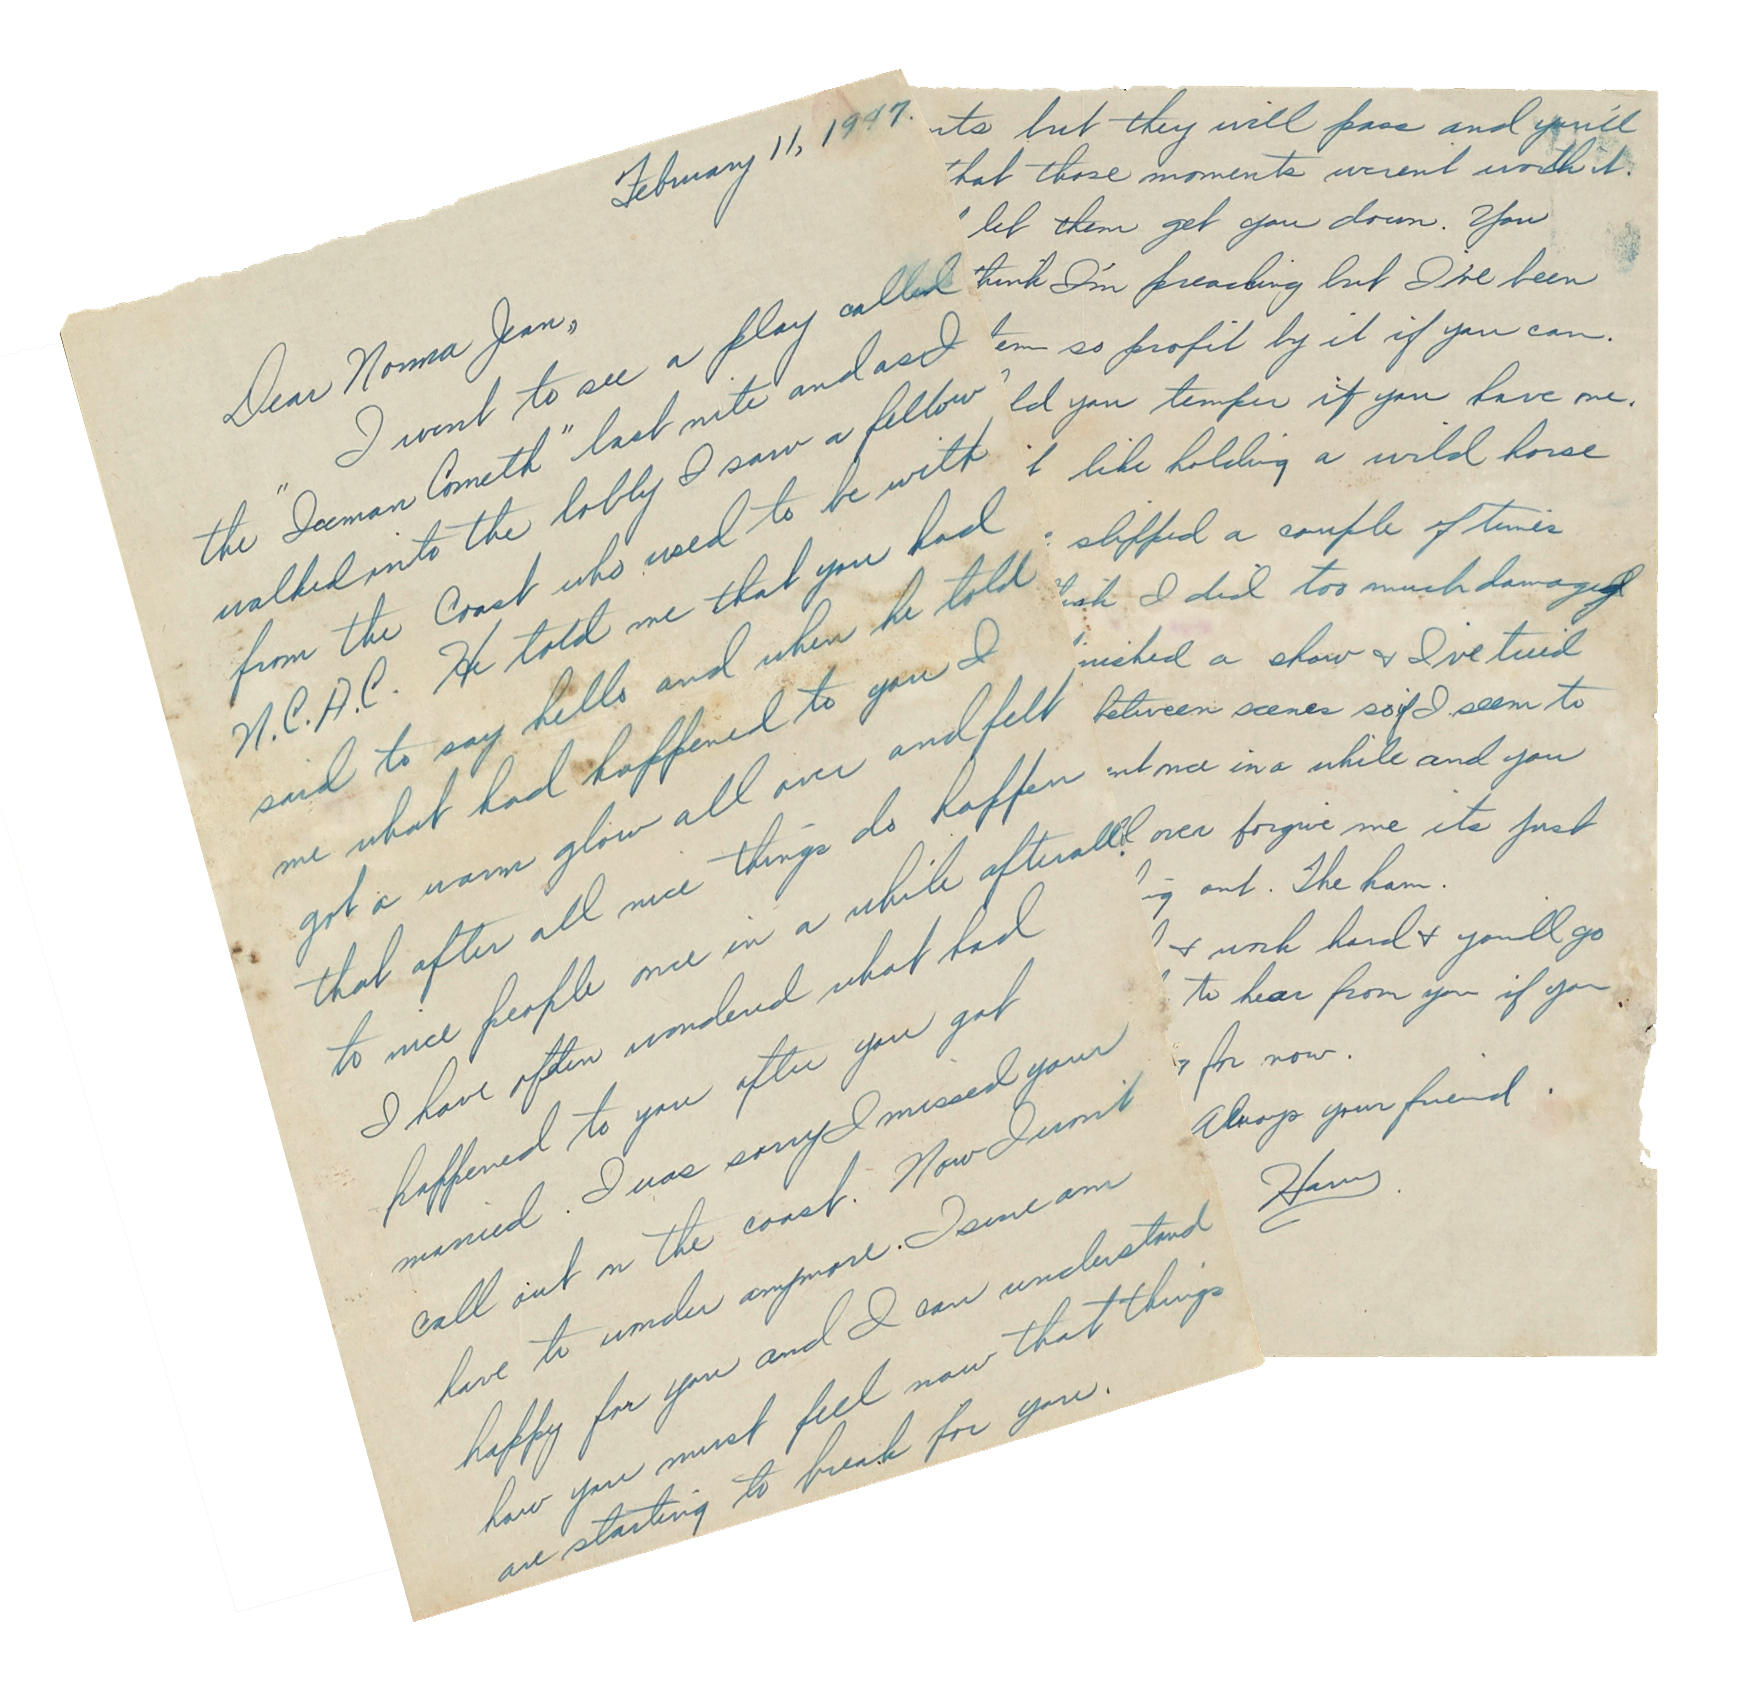 February 11, 1947.
Dear Norma Jean,
I went to see a play called
the "Iceman Cometh" last nite and as I
walked into the lobby I saw a fellow
from the Coast who used to be with
N.C.A.C. He told me that you had
said to say hello and when he told
me what had happened to you I
got a warm glow all over and felt
that after all nice things do happen
to nice people once in a while afterall.
I have often wondered what had
happened to you after you got
married. I was sorry I missed your
call out on the coast. Now I won't
have to wonder anymore. I sure am
happy for you and I can understand
how you must feel now that things
are starting to break for you.
but they will pass and you'll
that those moments weren't worth it.
let them get you down. You
think I'm preaching but I've been
so profit by it if you can.
you temper if you have one.
like holding a wild horse
slipped a couple of times
I did too much damage
a show & I've tried
between scenes so if I seem to
once in a while and you
over forgive me its just
out. The ham.
& work hard & you'll go
to hear from you if you
for now.
Always your friend.
Harry.